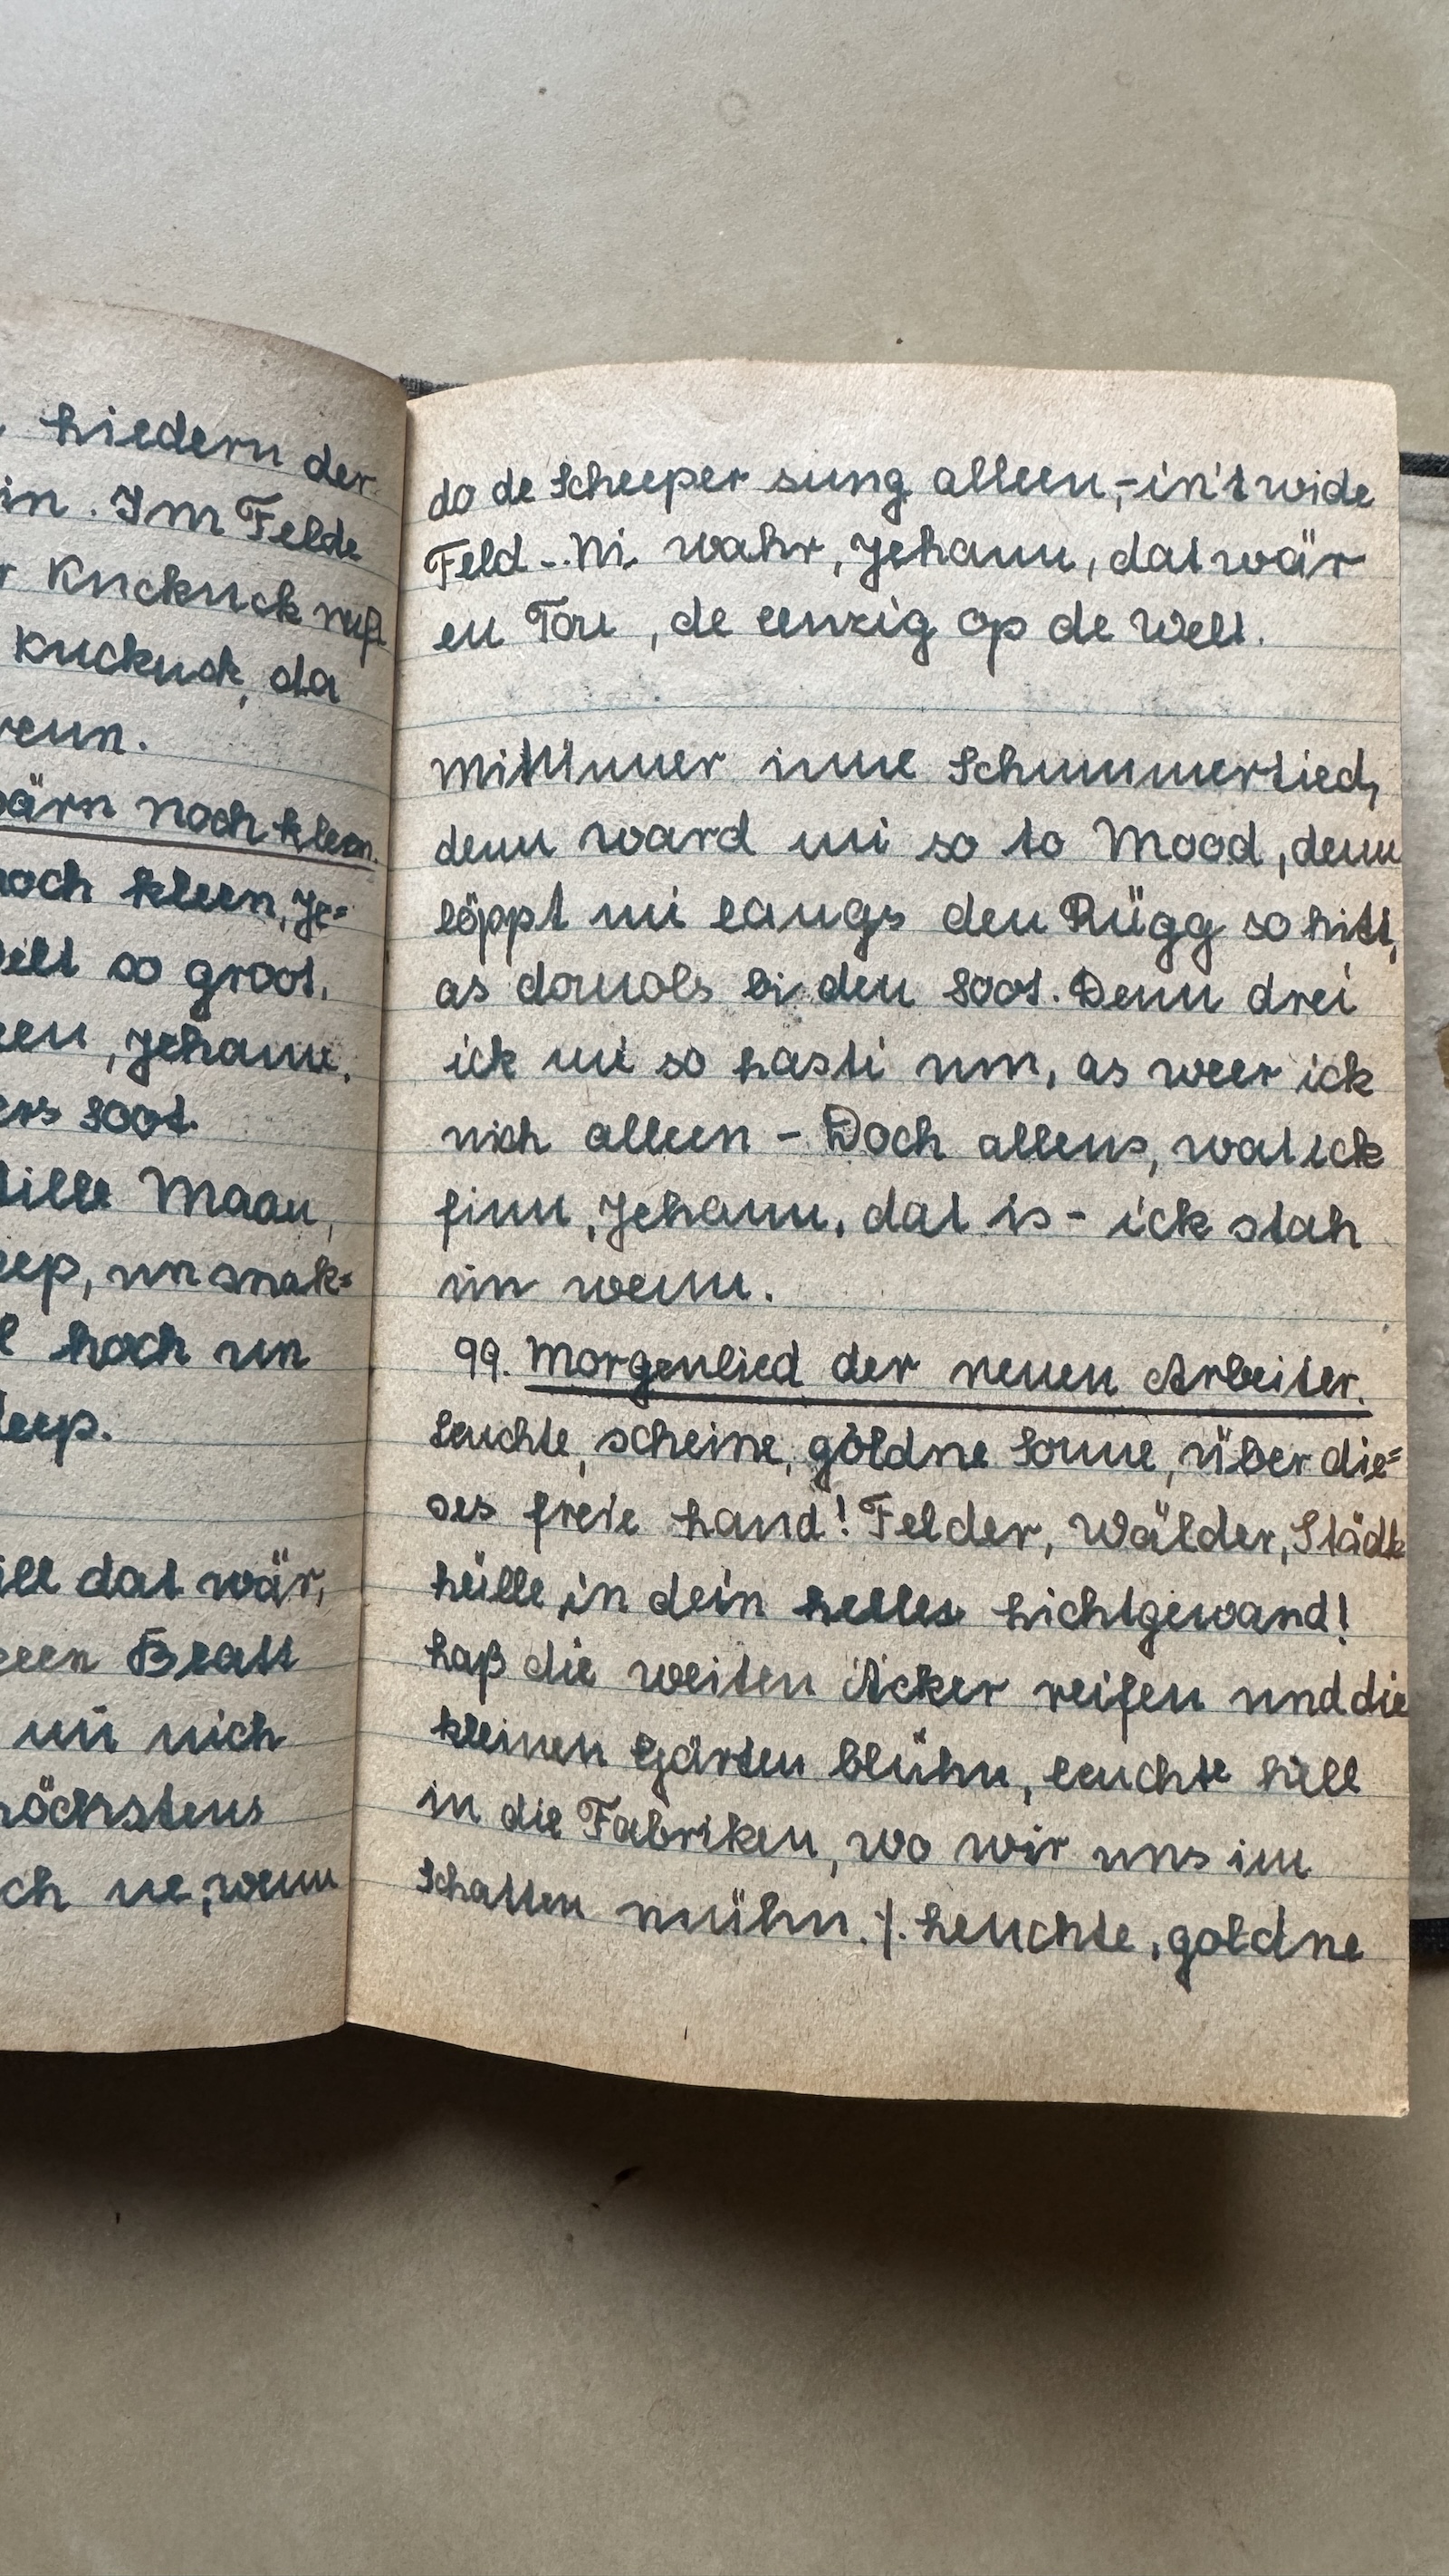 Liedern der
in. Im Felde
Kuckuck ruft
Kuckuck, da
wärn noch kleen.
noch kleen, Je=
so groot.
, Jehann,
Soot.
stille Maan,
un snak=
hoch un
deep.
dat wär,
Blatt
mi nich
höchstens
ne, wenn
do de Scheeper sung alleen,- in't wide
Feld -. Ni wahr, Jehann, dat wär
en Ton, de eenzig op de Welt.
Mitünner inne Schummertied,
denn ward mi so to Mood, denn
löppt mi langs den Rügg so hitt,
as domols bi den Soot. Denn drei
ick mi so hasti um, as weer ick
nich alleen - Doch allens, wat ick
finn, Jehann, dat is - ick stah
un wenn.
99. Morgenlied der neuen Arbeiter.
Leuchte, scheine, goldne Sonne, über die=
ses freie Land! Felder, Wälder, Städte
hülle in dein helles Lichtgewand!
Laß die weiten Äcker reifen und die
kleinen Gärten blühn, leuchte hell
in die Fabriken, wo wir uns im
Schatten mühn. ⁒ Leuchte, goldne